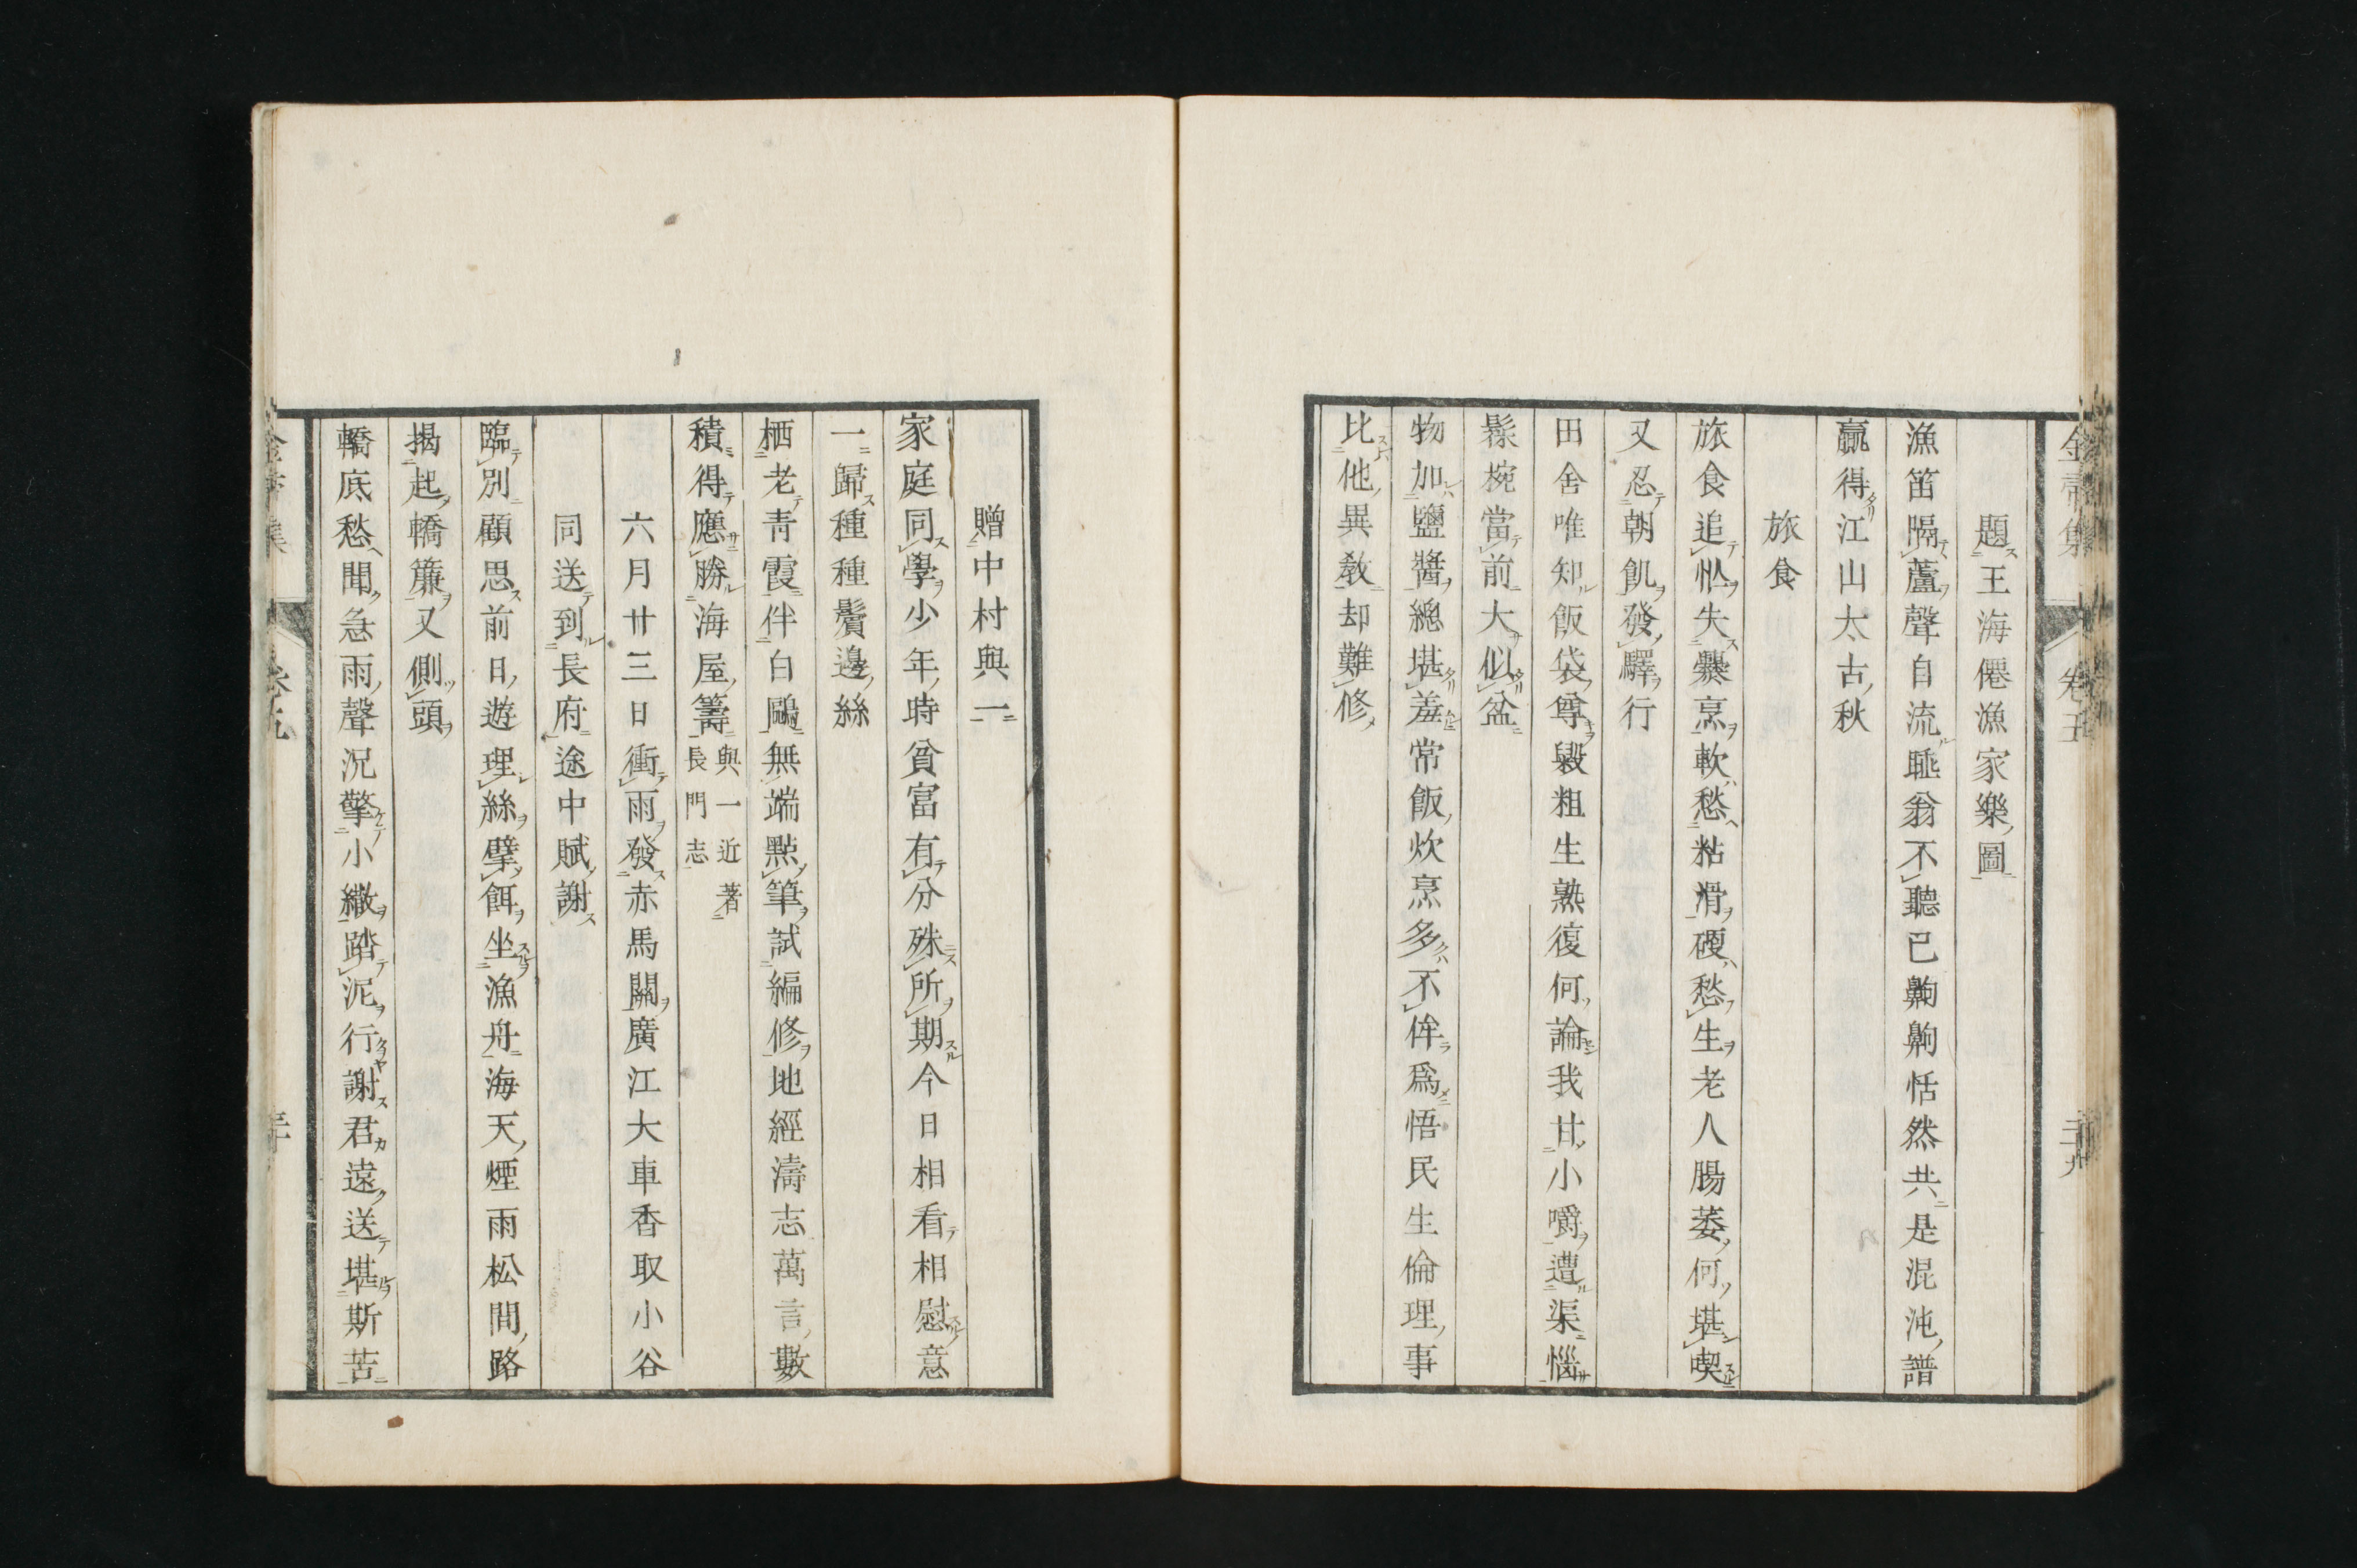 題王海僊漁家樂圖
漁笛隔蘆聲自流睡翁不聽已齁齁恬然共是混沌譜
贏得江山太古秋
旅食
旅食追忪失爨烹軟愁粘滑硬愁生老人腸萎何堪喫
又忍朝飢發驛行
田舍唯知飯袋尊毇粗生熟復何論我甘小嚼遭渠惱
髹椀當前大似盆
物加鹽醬總堪羞常飯炊烹多不侔爲悟民生倫理事
比他異教却難修
贈中村與一
家庭同學少年時貧富有分殊所期今日相看相慰意
一歸種種鬢邊絲
栖老青霞伴白鷗無端點筆試編修地經濤志萬言數
積得應勝海屋籌與一近著
長門志
六月廿三日衝雨發赤馬關廣江大車香取小谷
同送到長府途中賦謝
臨別顧思前日遊理絲擘餌坐漁舟海天煙雨松間路
揭起轎簾又側頭
轎底愁聞急雨聲況擎小繖踏泥行謝君遠送堪斯苦